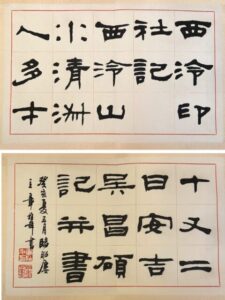 西泠印
社記
西泠山
水清淑
人多才
十又二
日安吉
吳昌碩
記并書
癸亥夏五月臨
書